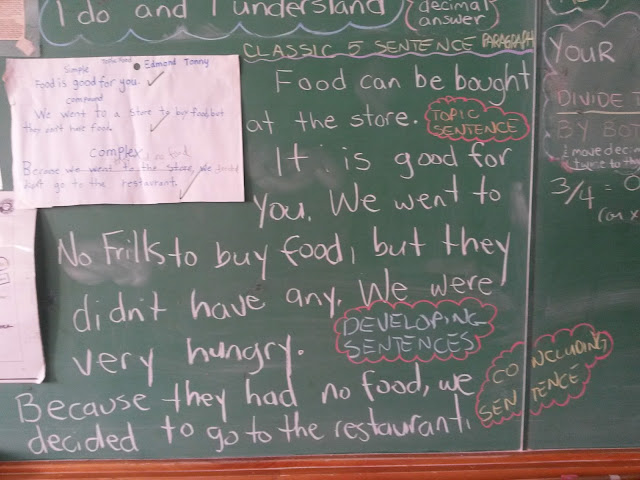 I do and I understand
decimal
answer
CLASSIC 5 SENTENCE PARAGRAPH
Simple
Edmond Tonny
Food is good for you.
compound
We went to a store to buy food but
they don't have food.
complex
Because we went to the store, we
didn't go to the restaurant.
Food can be bought
at the store.
TOPIC
SENTENCE
It is good for
you. We went to
No Frills to buy food, but they
didn't have any. We were
very hungry.
DEVELOPING
SENTENCES
Because they had no food, we
decided to go to the restaurant.
CONCLUDING
SENTENCE
YOUR
DIVIDE T
BY BO
move deci
twice to th
3/4 = 0